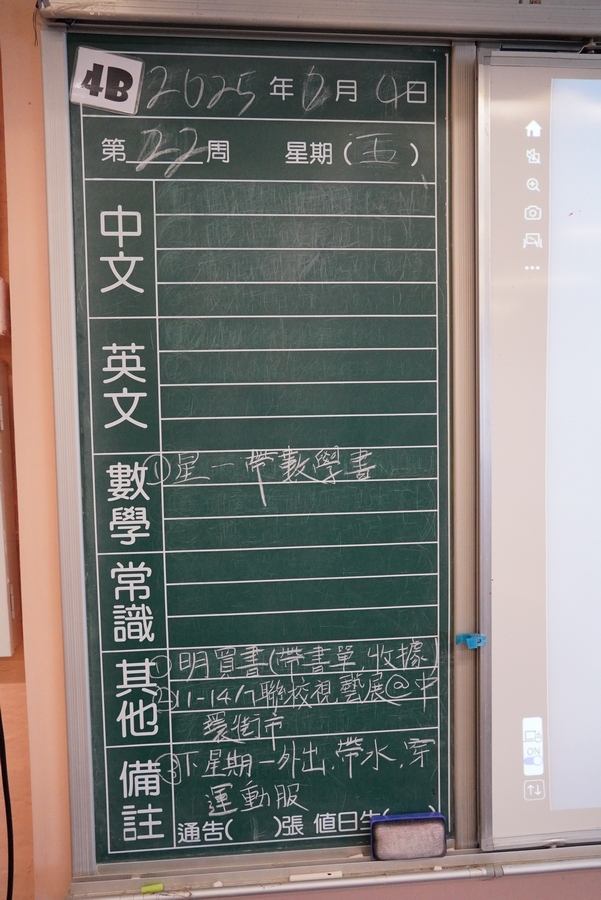 4B
2025年 月 4日
第22周 星期(五)
中文
英文
數學
①星一帶數學書
常識
其他
①明買書(帶書單,收據)
②11-14/7聯校視藝展@中
環街市
備註
③下星期一外出,帶水,穿
運動服
通告( )張 值日生( )
ON